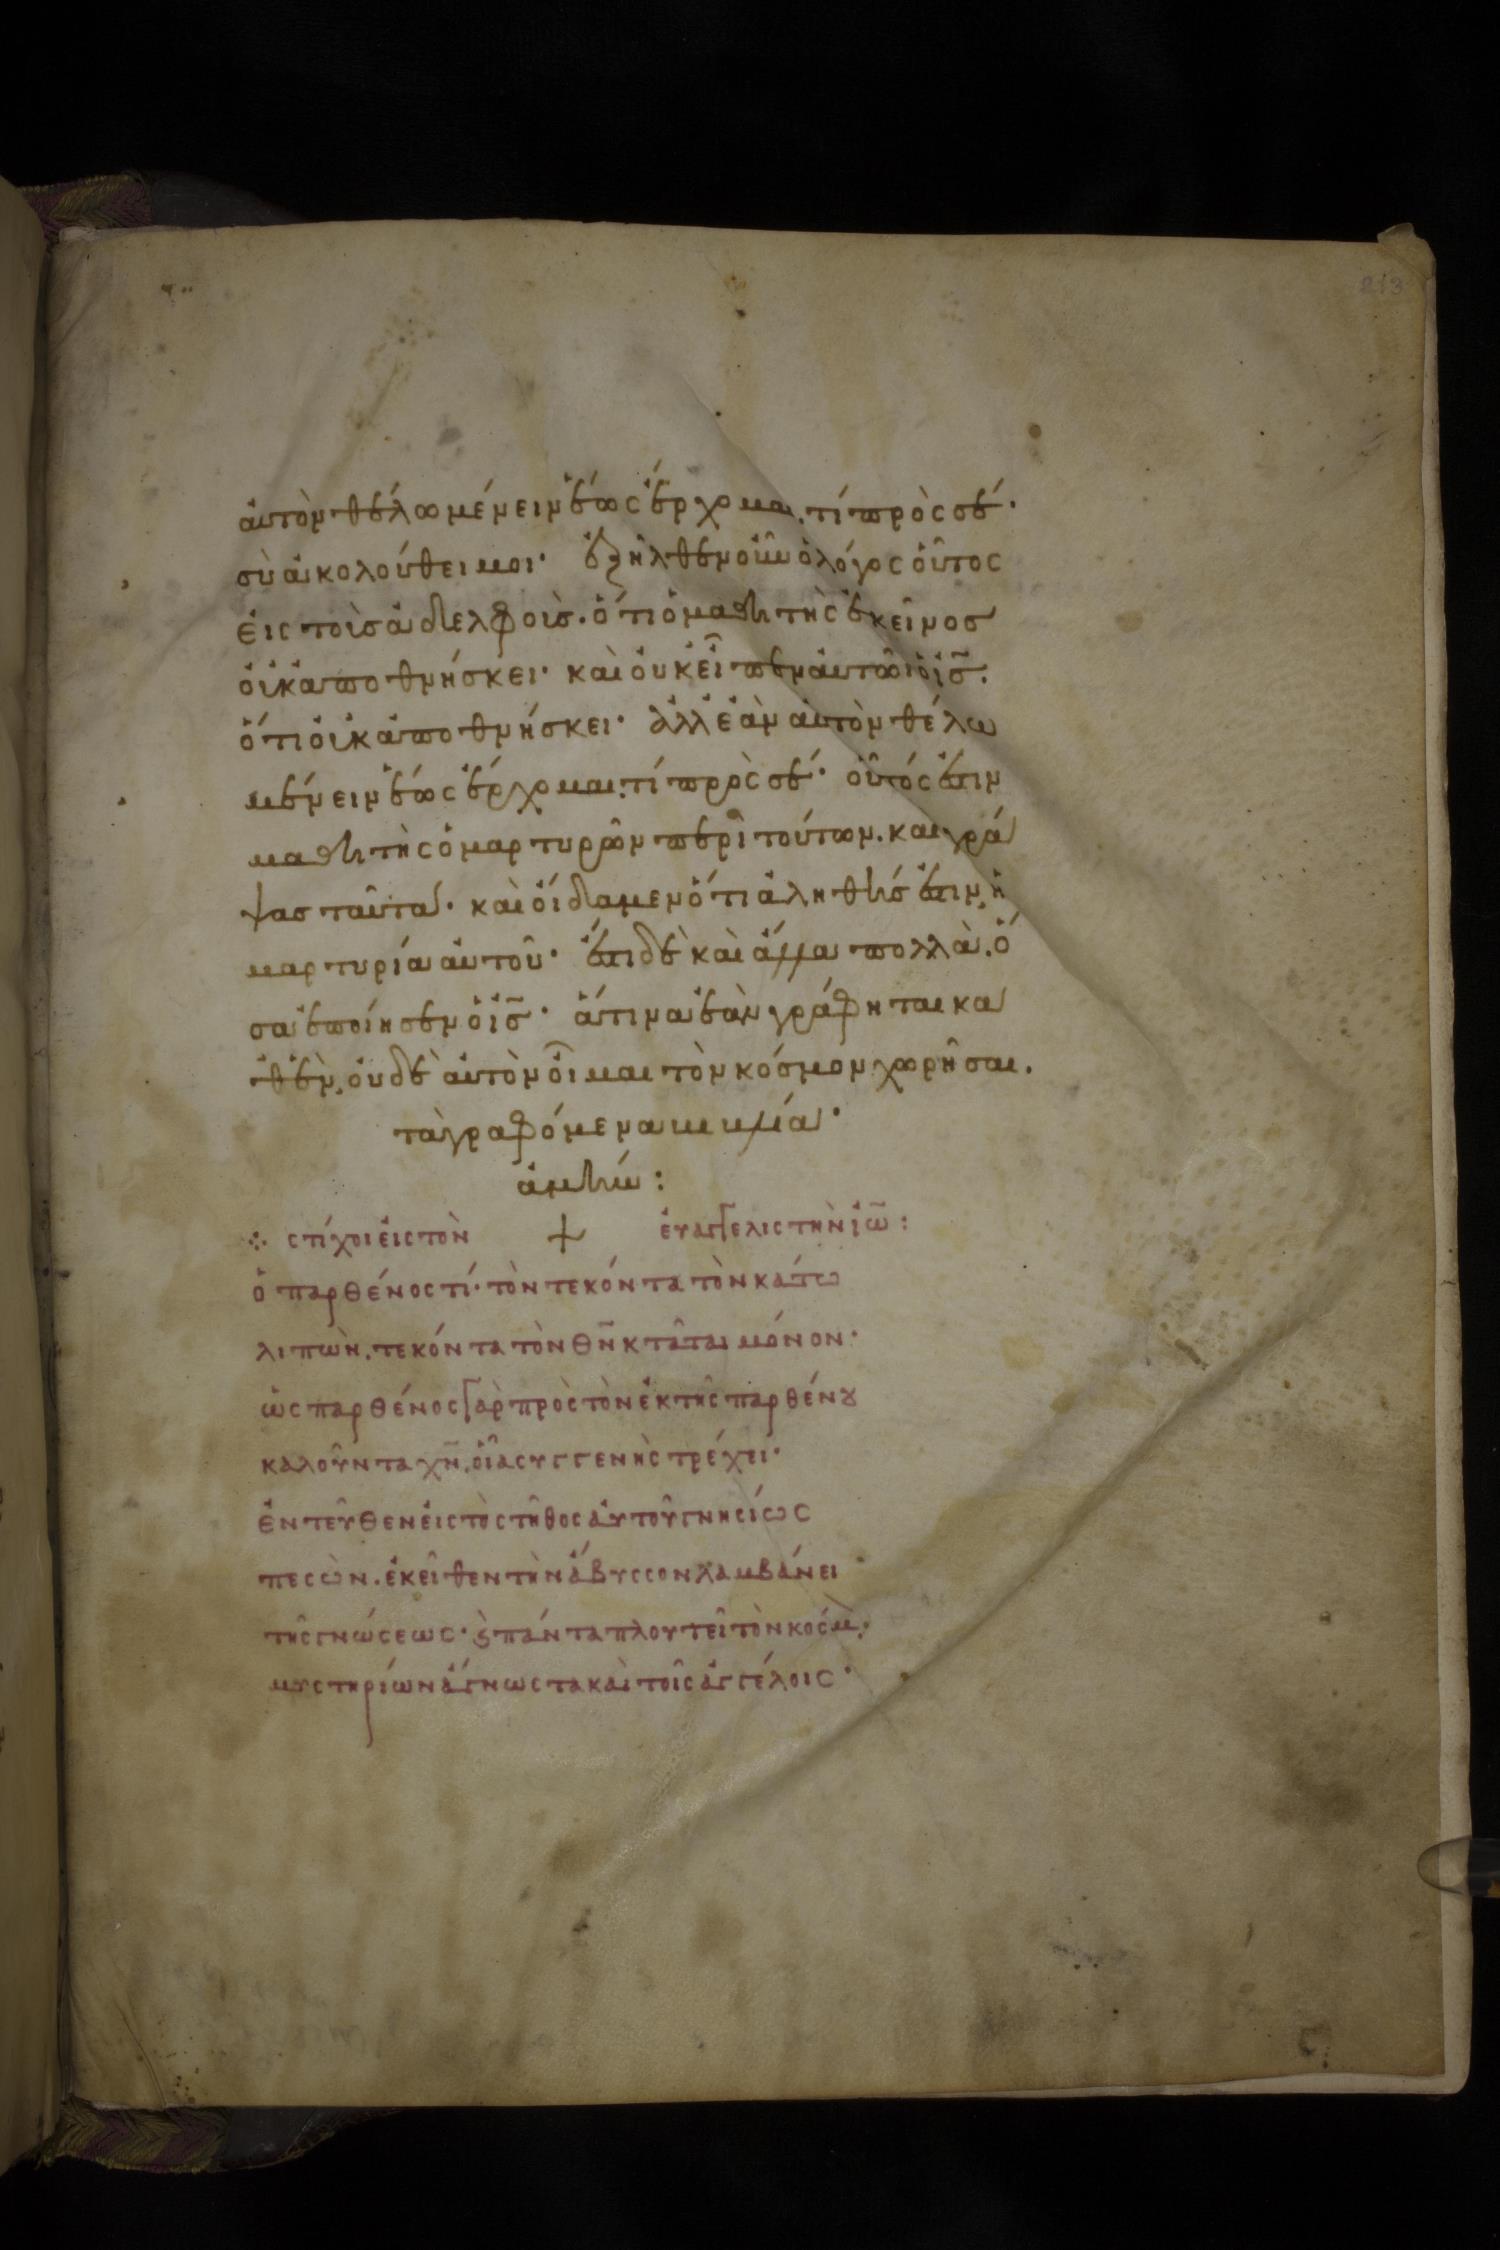 213
ἀυτὸν θέλω μένειν ἕως ἔρχομαι. τί πρὸς σέ·
σὺ ἀκολούθει μοι· ἐξῆλθεν οὖν ὁ λόγος οὗτος
ἐις τοὺς ἀδελφούς. ὅτι ὁ μαθητὴς ἐκεῖνος
οὐκ ἀποθνήσκει· καὶ ὀυκ εἶπεν ἀυτῶ ὁ ἰς̄.
ὅτι οὐκ ἀποθνήσκει· ἀλλ ἐὰν ἀυτὸν θέλω
μένειν ἕως ἔρχομαι. τί πρὸς σέ· οὗτός ἐστιν
μαθητὴς ὁ μαρτυρῶν περὶ τούτων. και γρά
ψας ταῦτα· καὶ οἴδαμεν ὅτι ἀληθής ἐστιν, ἡ
μαρτυρία ἀυτοῦ· ἔστι δὲ καὶ ἄλλα πολλὰ. ὅ
σα ἐποίησεν ὁ ἰς̄· ἅτινα ἐὰν γράφηται κα
θἕν, ὀυδὲ ἀυτὸν οἶμαι τὸν κόσμον χωρῆσαι.
τὰ γραφόμενα βιβλία·
ἀμήν:
⁘ στίχοι ἐις τὸν + ἐυαγγελιστὴν ἰω̄:
ὁ παρθένος τί· τὸν τεκόντα τὸν κάτω
λιπὼν. τεκόντα τὸν θν̄ κτᾶται μόνον·
ὡς παρθένος γὰρ πρὸς τὸν ἐκ τῆς παρθένου
καλοῦντα χν̄. οἷα συγγενὴς τρέχει·
ἐντεῦθεν ἐις τὸ στῆθος ἀυτοῦ γνησίως
πεσὼν. ἐκεῖθεν τὴν ἄβυσσον λαμβάνει
τῆς γνώσεως· ϗ πάντα πλουτεῖ τὸν κόσμ.
μυστηρίων ἄγνωστα καὶ τοῖς ἀγγέλοις·